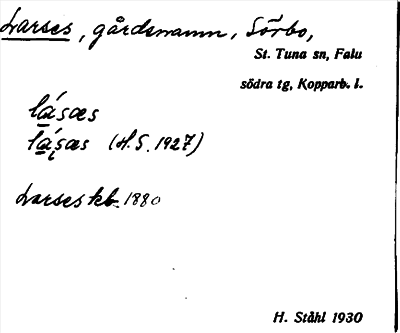 Larses, gårdsnamn, Sörbo,
St. Tuna sn, Falu
södra tg, Kopparb. l.
lásæs
lásæs (H.S. 1927)
Larses kb. 1880
H. Ståhl 1930